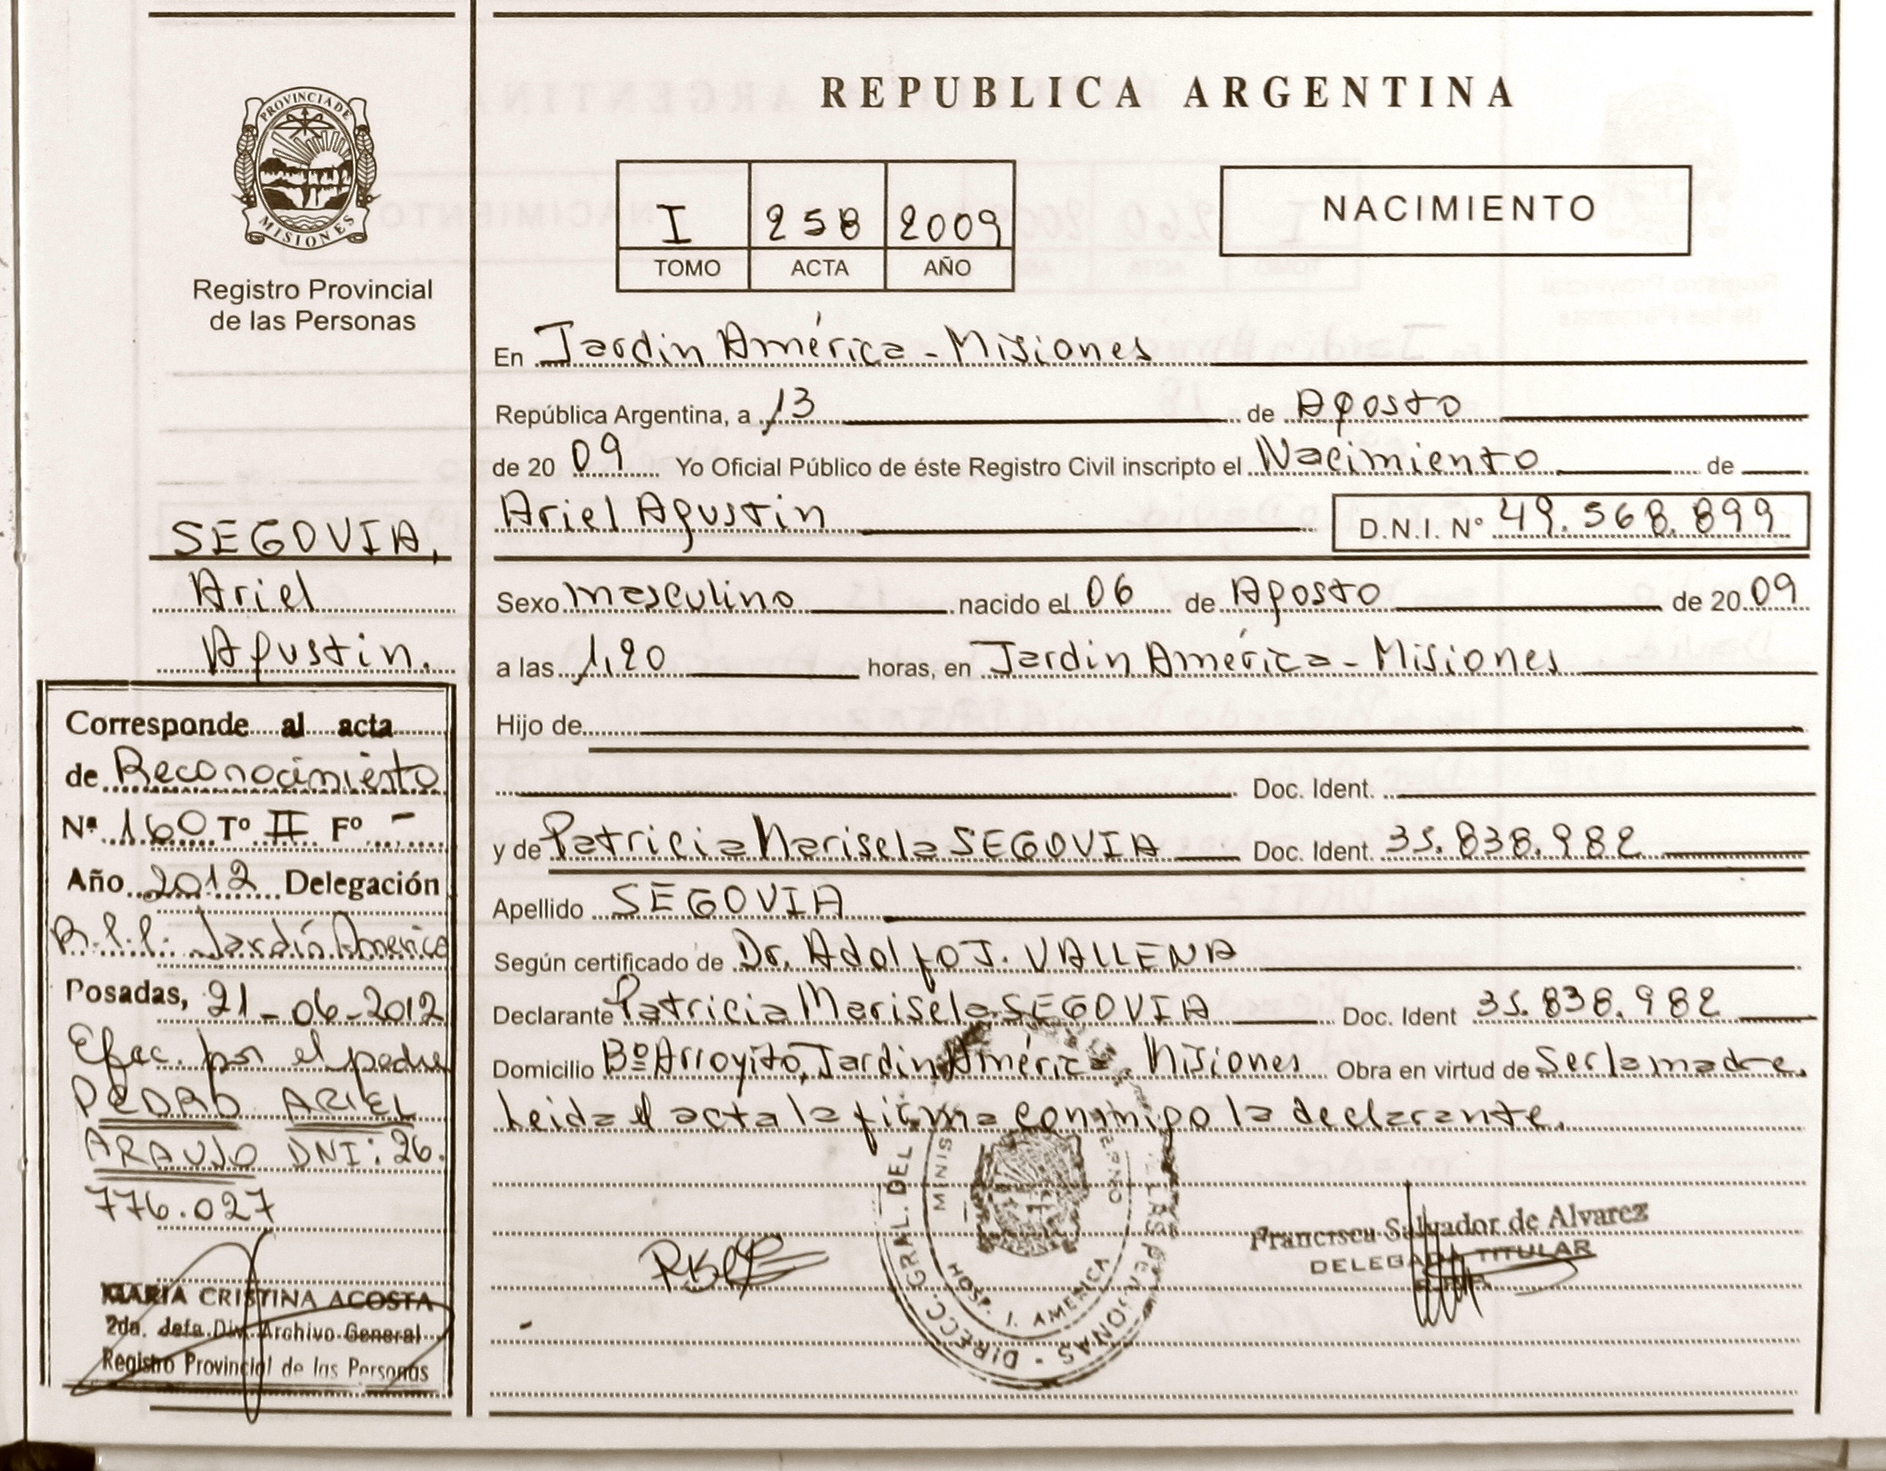 PROVINCIA DE
MISIONES
Registro Provincial
de las Personas
SEGOVIA,
Ariel
Agustin.
Corresponde al acta
de Reconocimiento
Nª 160 Tº II Fº -
Año 2012 Delegación
Jardín América
Posadas, 21-06-2012
Efec. por el padre
PEDRO ARIEL
ARAUJO DNI: 26.
776.027
MARIA CRISTINA ACOSTA
2da. Jefa Div. Archivo General
Registro Provincial de las Personas
REPUBLICA ARGENTINA
I 258 2009
TOMO ACTA AÑO
NACIMIENTO
En Jardin América - Misiones
República Argentina, a 13 de Agosto
de 20 09 Yo Oficial Público de éste Registro Civil inscripto el Nacimiento de
Ariel Agustin D.N.I. Nº 49.568.899
Sexo masculino nacido el 06 de Agosto de 20 09
a las 1,20 horas, en Jardin América - Misiones
Hijo de
Doc. Ident.
y de Patricia Marisela SEGOVIA Doc. Ident. 35.838.982
Apellido SEGOVIA
Según certificado de Dr. Adolfo J. VALLENA
Declarante Patricia Marisela SEGOVIA Doc. Ident 35.838.982
Domicilio Bº Arroyito, Jardin América - Misiones Obra en virtud de Ser la madre.
Leida el acta la firma conmigo la declarante.
DIRECC. GRAL. DEL LAS PERSONAS
HOSP. J. AMERICA
Francisca Salvador de Alvarez
DELEGADA TITULAR